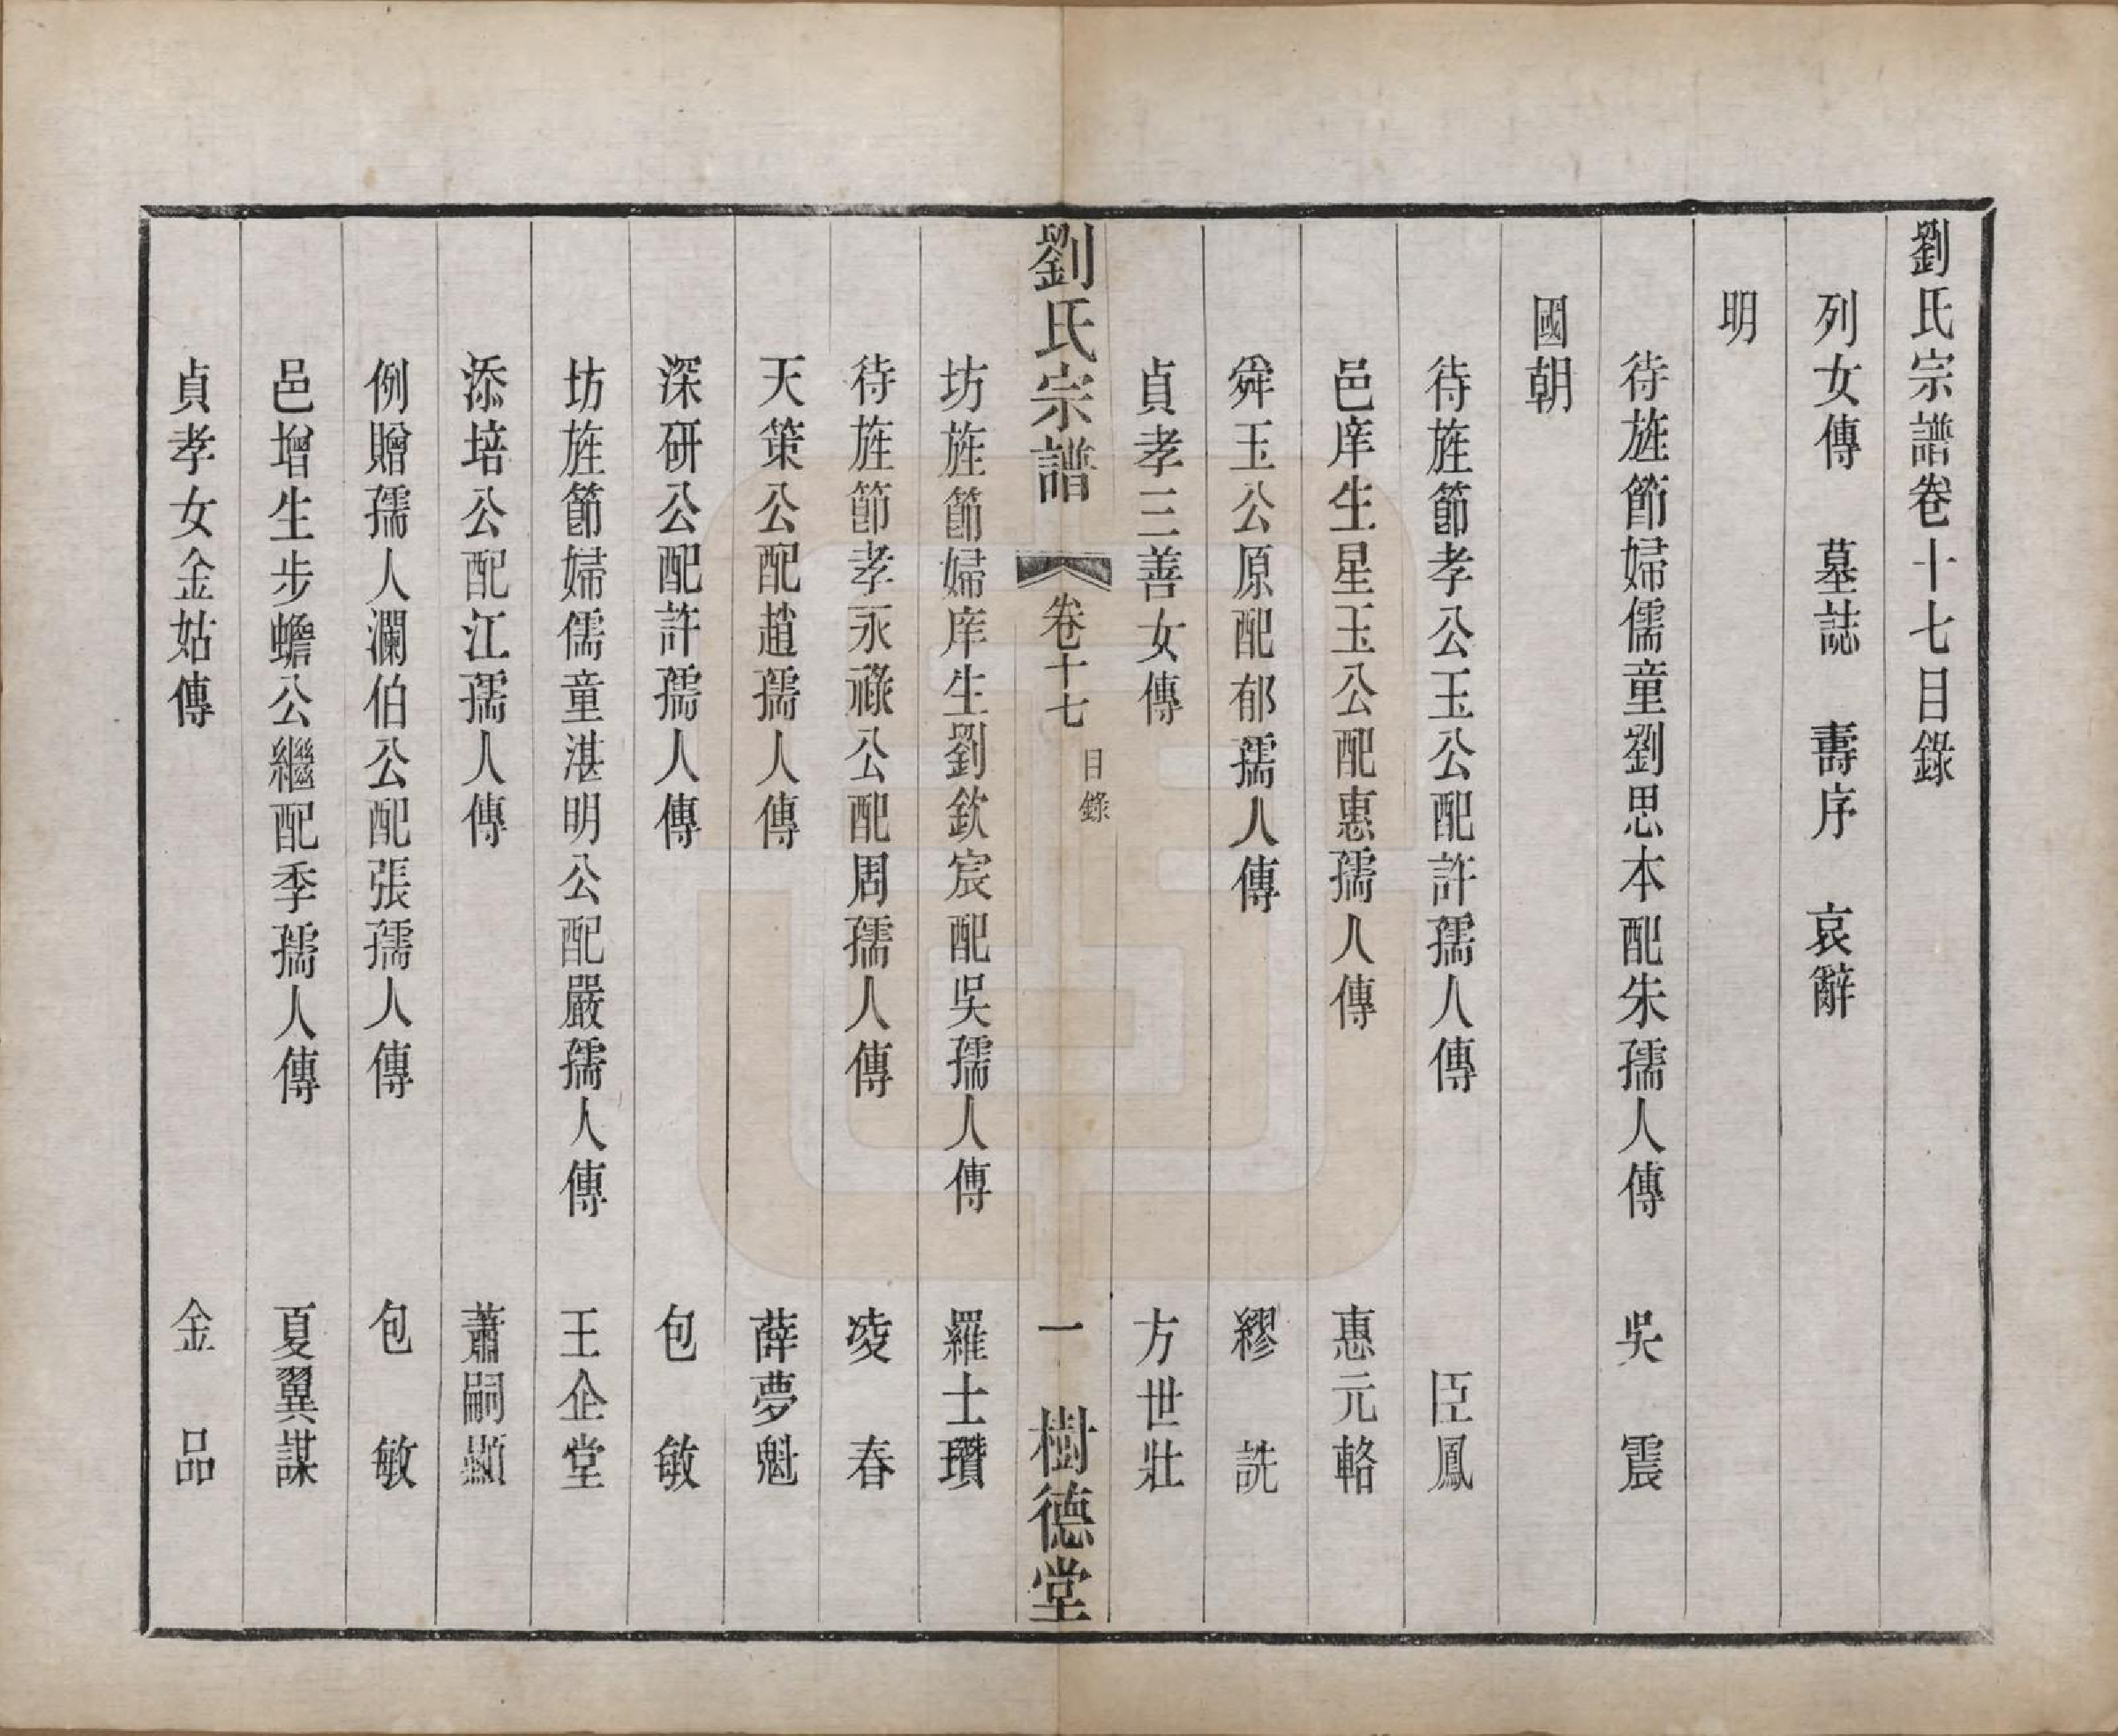 劉氏宗譜卷十七目錄
列女傳　墓誌　壽序　哀辭
明
待旌節婦儒童劉思本配朱孺人傳　吳　震
國朝
待旌節孝公玉公配許孺人傳　臣鳳
邑庠生星玉公配惠孺人傳　惠元輅
舜玉公原配郁孺人傳　繆　詵
貞孝三善女傳　方世壯
劉氏宗譜　卷十七　目錄　一　樹德堂
坊旌節婦庠生劉欽宸配吳孺人傳　羅士瓚
待旌節孝永祿公配周孺人傳　凌　春
天策公配趙孺人傳　薛夢魁
深研公配許孺人傳　包　敏
坊旌節婦儒童湛明公配嚴孺人傳　王企堂
添培公配江孺人傳　蕭嗣顯
例贈孺人瀾伯公配張孺人傳　包　敏
邑增生步蟾公繼配季孺人傳　夏翼謀
貞孝女金姑傳　金　品